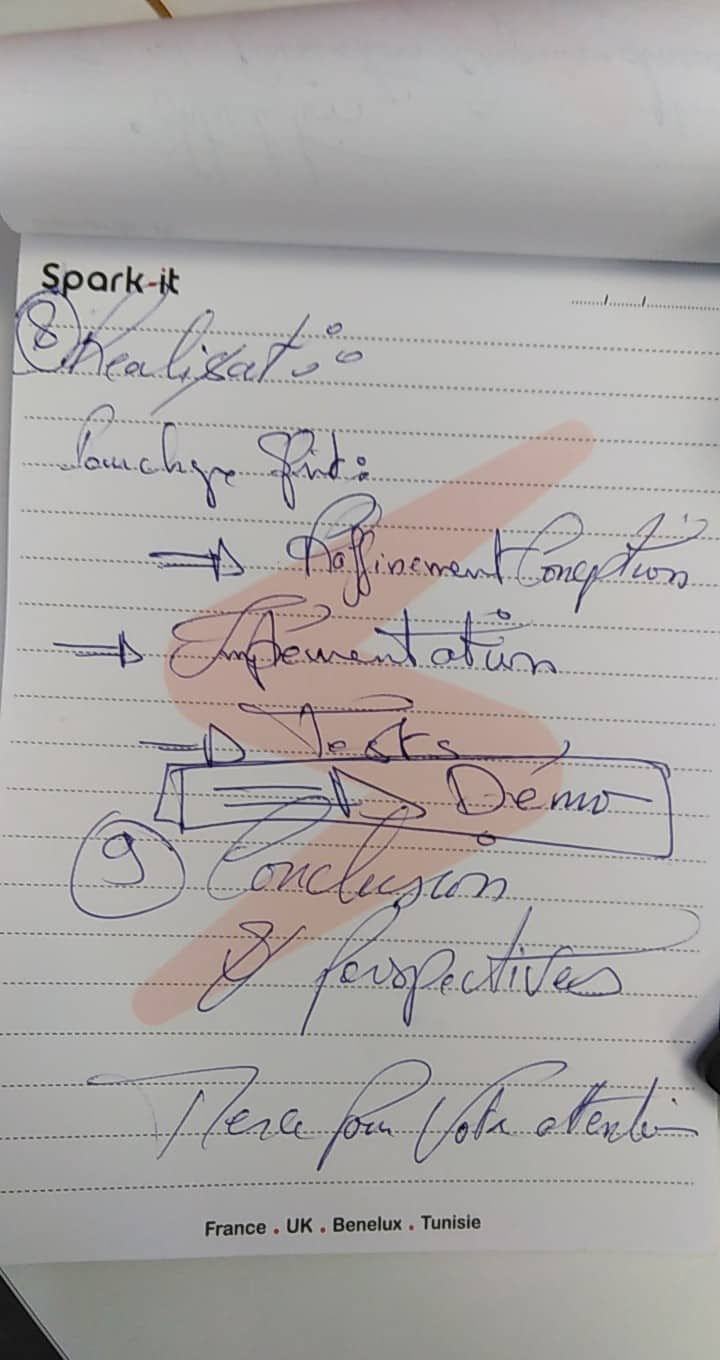 Spark-it
8 Realisation
Pour chaque Sprint:
⇒ Raffinement Conception
⇒ Implémentation
⇒ Tests
⇒ Démo
9 Conclusion
& Perspectives
Merci pour Votre attention
France . UK . Benelux . Tunisie